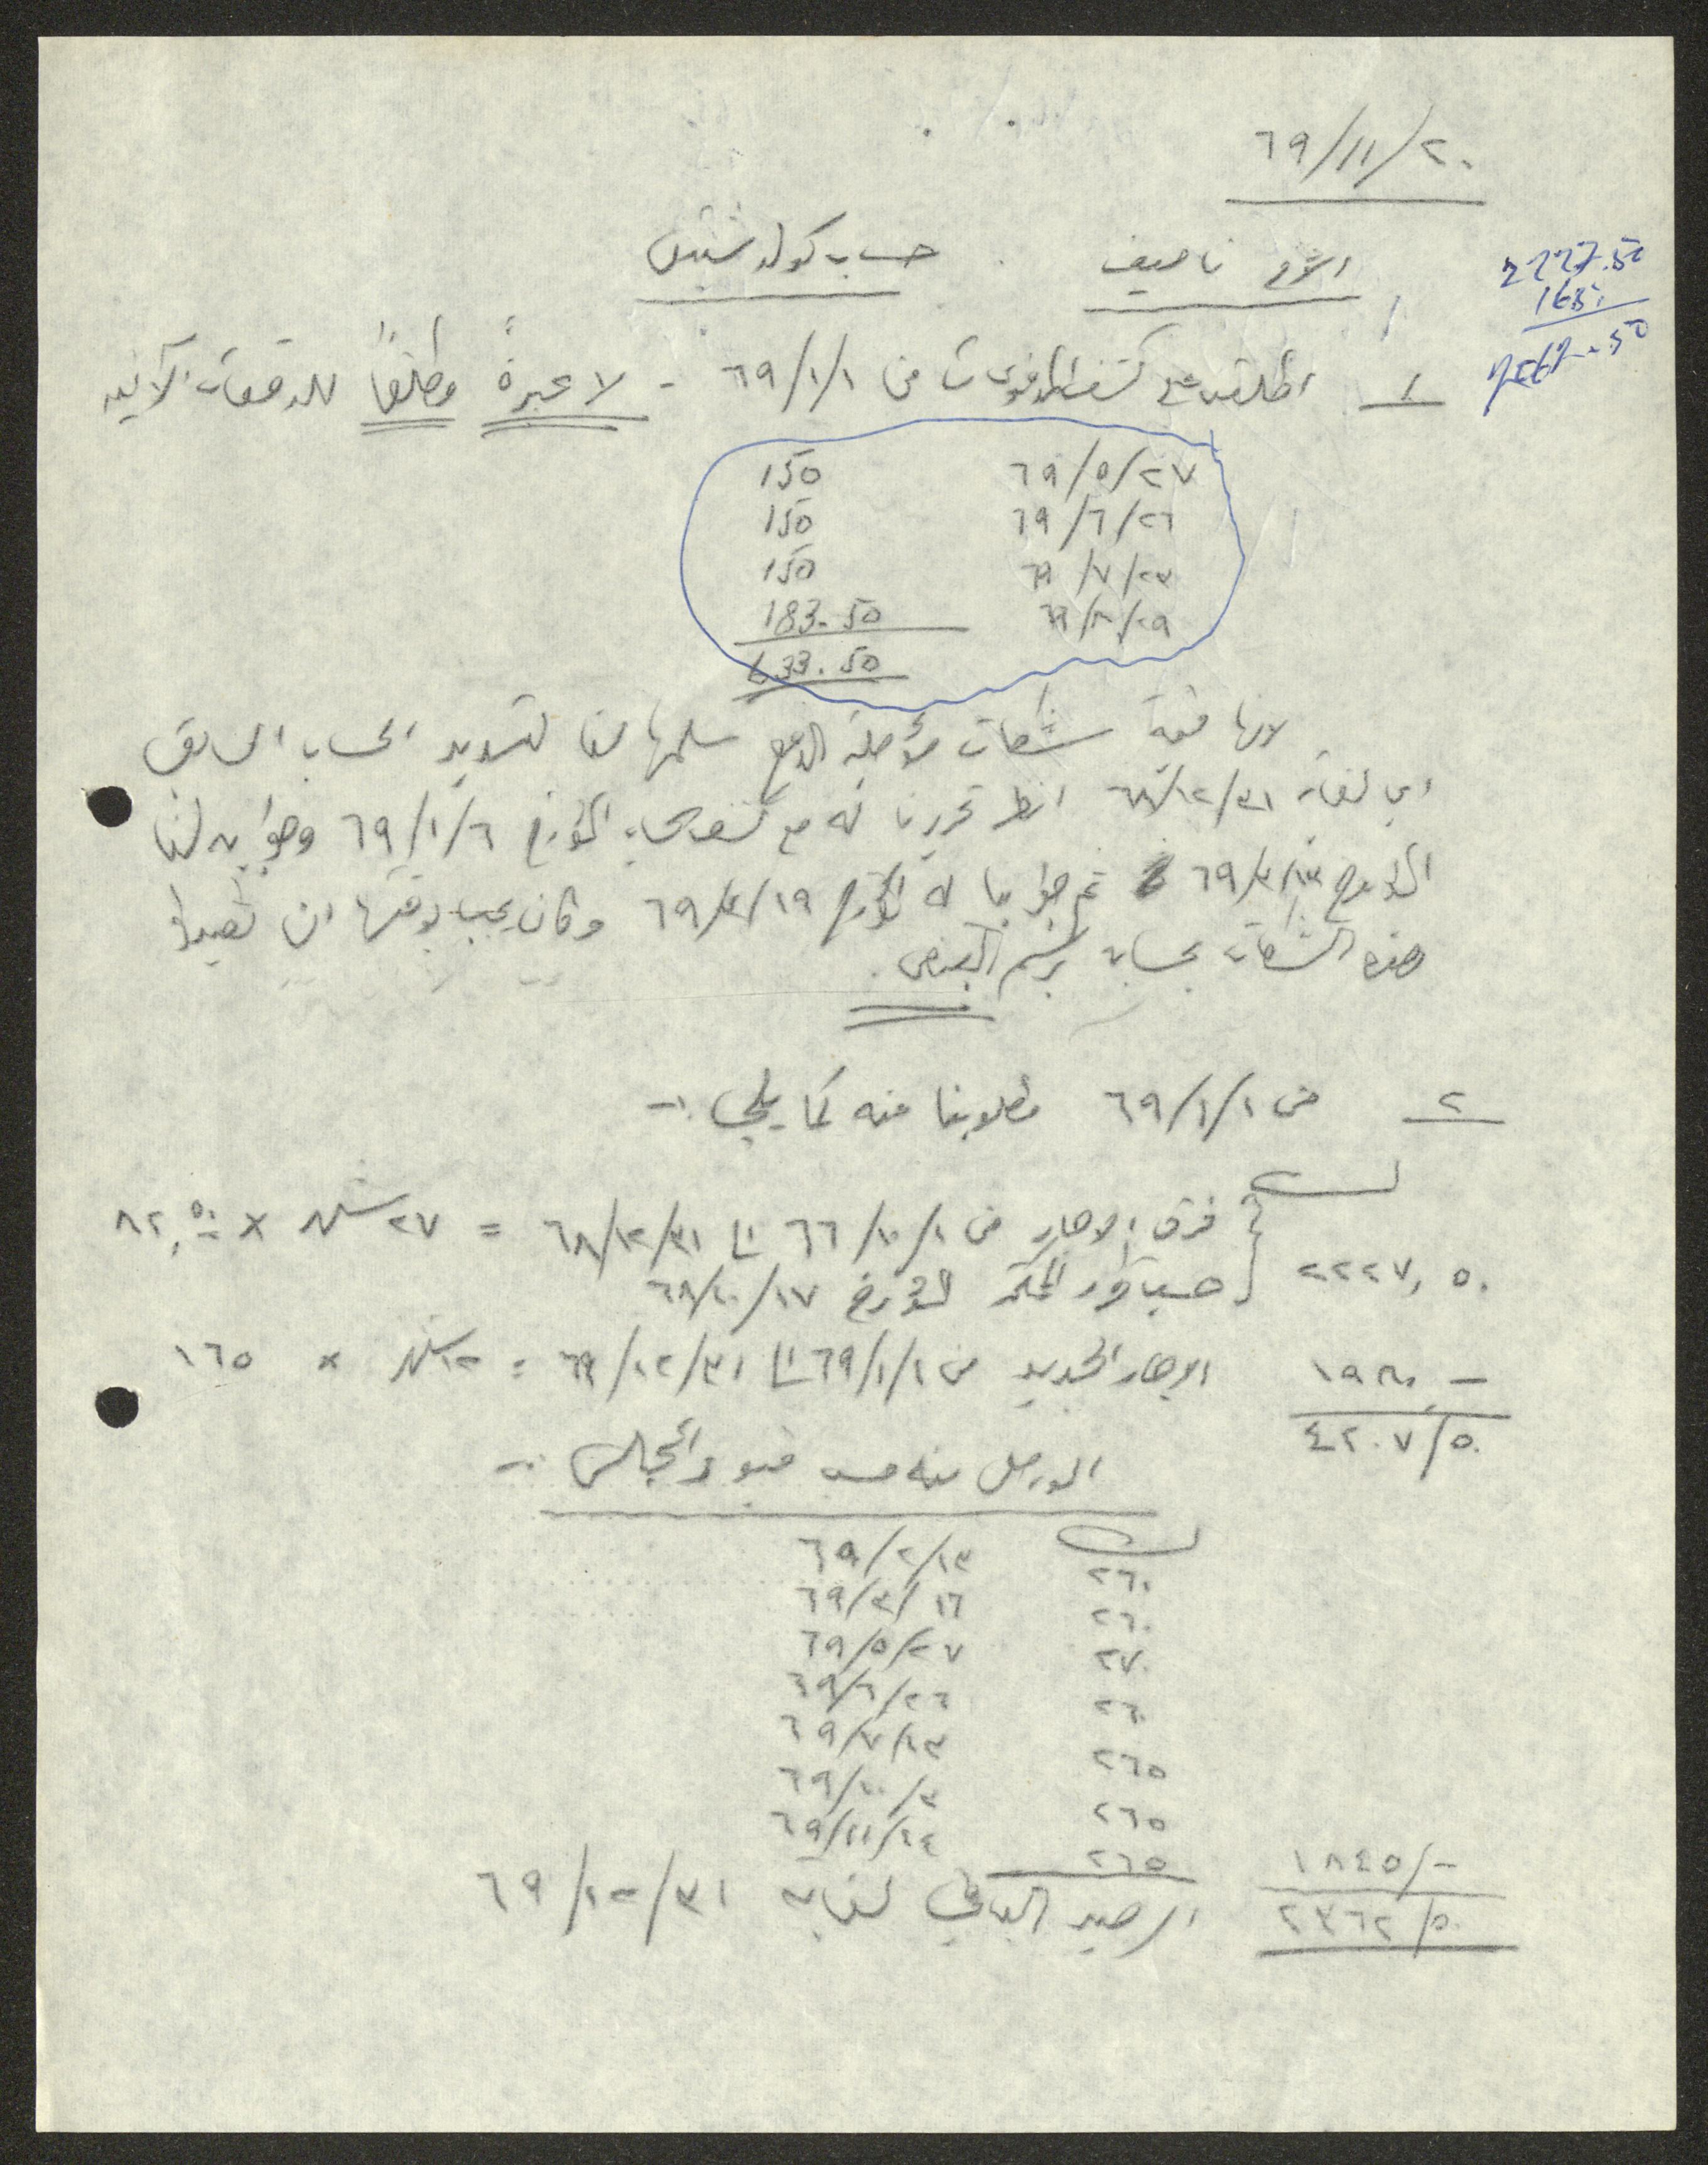 ٦٩/١١/٢٠
الأخ ناصيف . حساب كولدشتين
2227.50
1650
١ اطلعت على كشف المدفوعات من ٦٩/١/١ - لا عبرة مطلقاً للدفعات الآتية
٦٩/٥/٢٧ 150
٦٩/٦/٢٦ 150
٦٩/٧/٢٣ 150
٦٩/٨/٢٩ 183.50
633.50
لانها قيمة شكات مؤجلة الدفع سلمها لنا لتسديد الحساب السابق
اي لغاية ٦٨/١٢/٣١ انظر تحريرنا له مع كشف الحساب المؤرخ ٦٩/١/٦ وجوابه لنا
المؤرخ ٦٩/٣/١٣ ثم جوابنا له المؤرخ ٦٩/٣/١٩ وكان يجب وقتها ان تقيدوا
هذه الشكات بحساب برسم القبض .
٢ من ٦٩/١/١ مطلوبنا منه كما يلي :-
ل
فرق الايجار من ٦٦/١٠/١ لغا ٦٨/١٢/٣١ = ٢٧ شهر × ٨٢,٥٠
٢٢٢٧,٥٠ حسب قرار المحكمة المؤرخ ٦٨/١٠/١٧
١٩٨٠,- الايجار الجديد من ٦٩/١/١ لغا ٦٩/١٢/٣١ = ١٢ شهر × ١٦٥
٤٢٠٧/٥٠
الواصل منه حسب قيود المجلس :-
ل
٢٦٠ ٦٩/٢/١٣
٢٦٠ ٦٩/٣/١٦
٢٧٠ ٦٩/٥/٢٧
٢٦٠ ٦٩/٦/٢٦
٢٦٥ ٦٩/٧/٢٣
٢٦٥ ٦٩/١٠/٣
١٨٤٥/- ٢٦٥ ٦٩/١١/١٤
٢٣٦٢/٥٠ الرصيد الباقي لغاية ٦٩/١٢/٣١